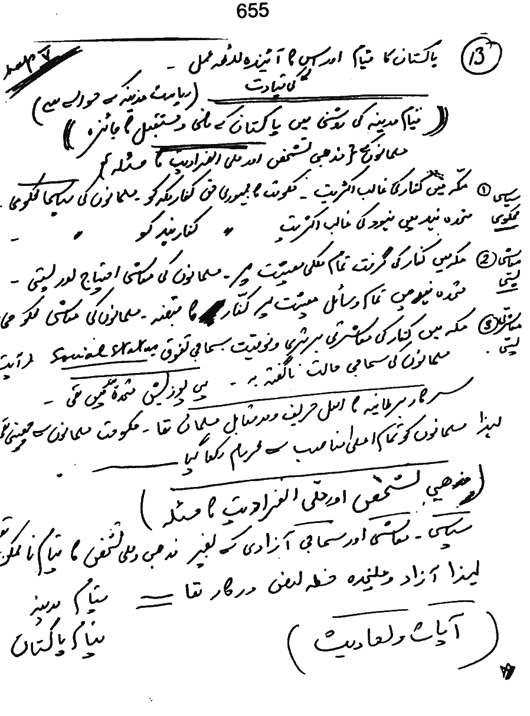 655
(13) پاکستان کا قیام اور اس کا آئندہ لائحہ عمل -
کی قیادت (ریاست مدینہ کے حوالے سے)
((قیام مدینہ کی روشنی میں پاکستان کے ماضی و مستقبل کا جائزہ))
مسلمانوں کے مذہبی تشخص اور ملی انفرادیت کا مسئلہ
سیاسی محکومی ① مکہ میں کفار کی غالب اکثریت - حکومت کا جمہوری حق کفار مکہ کو - مسلمانوں کی سیاسی محکومی -
متحدہ ہند میں ہنود کی غالب اکثریت " کفار ہند کو " -
معاشی پستی ② مکہ میں کفار کی گرفت تمام ملکی معیشت پر - مسلمانوں کی معاشی احتیاج اور پستی -
متحدہ ہند میں تمام وسائل معیشت پر کفار کا قبضہ - مسلمانوں کی معاشی محکومی
معاشرتی پستی ③ مکہ میں کفار کی معاشرتی برتری و فوقیت سماجی تفوق Social Status
مسلمانوں کی سماجی حالت ناگفتہ بہ - یہی پوزیشن متحدہ ہند میں تھی -
سرکار برطانیہ کا اصل حریف و مدمقابل مسلمان تھا - حکومت مسلمانوں سے چھینی
لہذا مسلمانوں کو تمام اعلیٰ مناصب سے محروم رکھا گیا
(مذہبی تشخص اور ملی انفرادیت کا مسئلہ)
سیاسی - معاشی اور سماجی آزادی کے بغیر مذہبی و ملی تشخص کا قیام ناممکن
لہذا آزاد و علیحدہ خطہ ارضی درکار تھا = قیام مدینہ
قیام پاکستان
(آیات و احادیث)